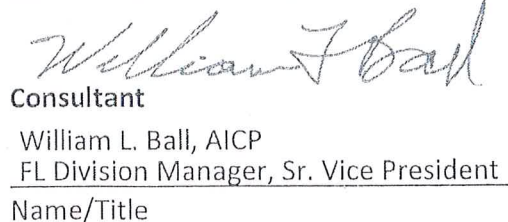 William L Ball
Consultant
William L. Ball, AICP
FL Division Manager, Sr. Vice President
Name/Title